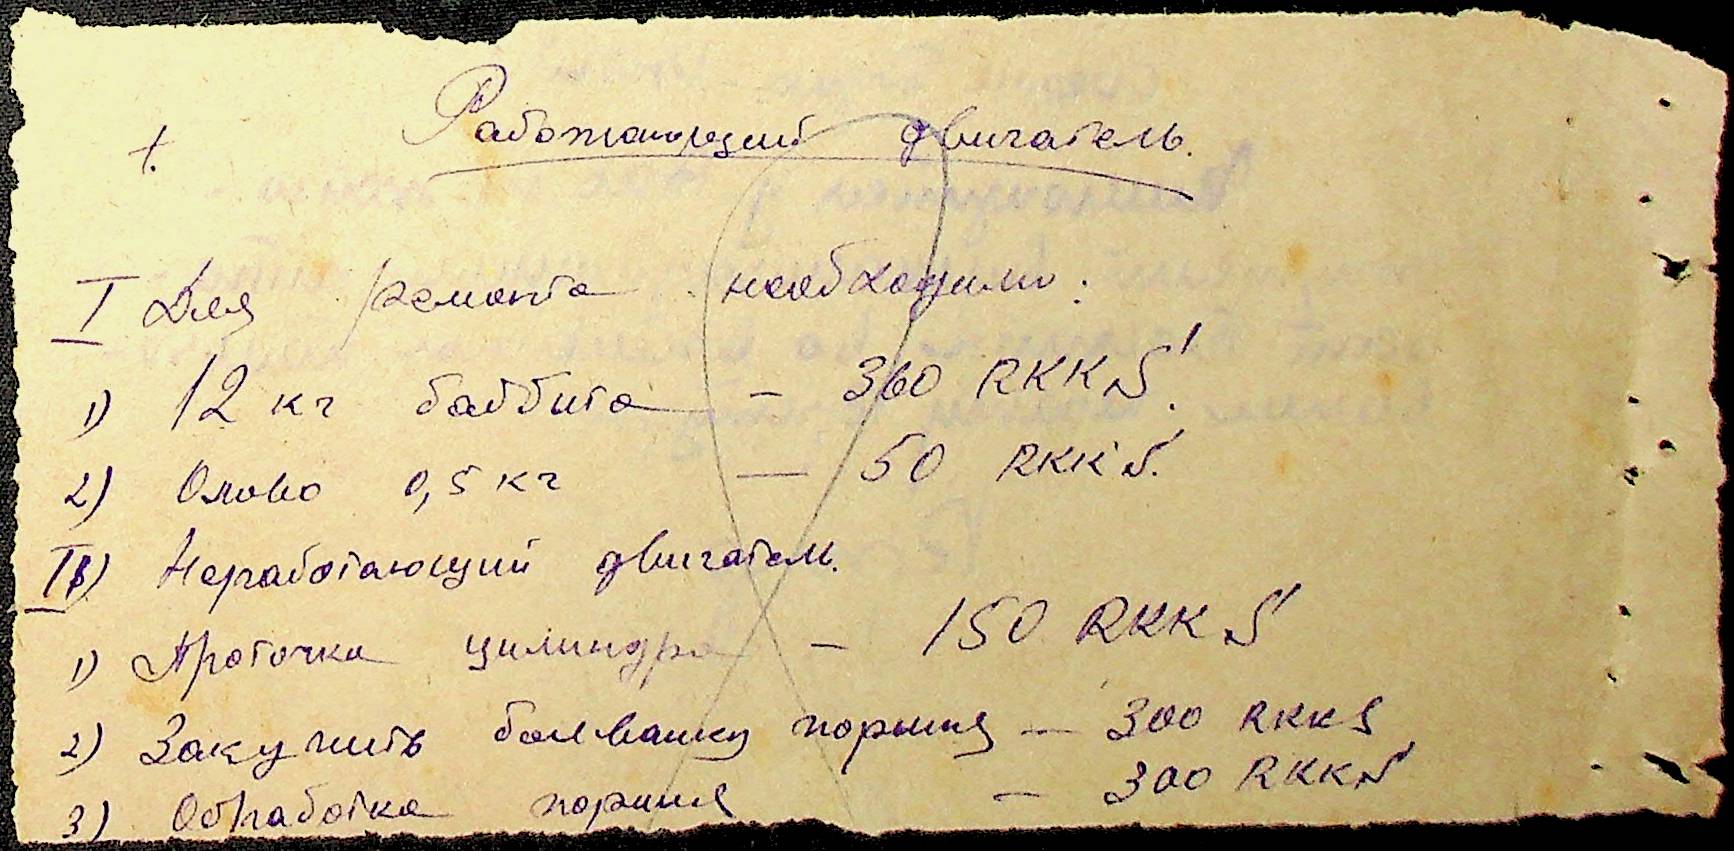 t. Работающий двигатель.
I Для ремонта необходимо:
1) 12 кг баббита — 360 RKKS.
2) Олово 0,5 кг — 50 RKKS.
II) Неработающий двигатель.
1) Проточка цилиндра — 150 RKKS
2) Закупить болванку поршня — 300 RKKS
3) Обработка поршня — 300 RKKS